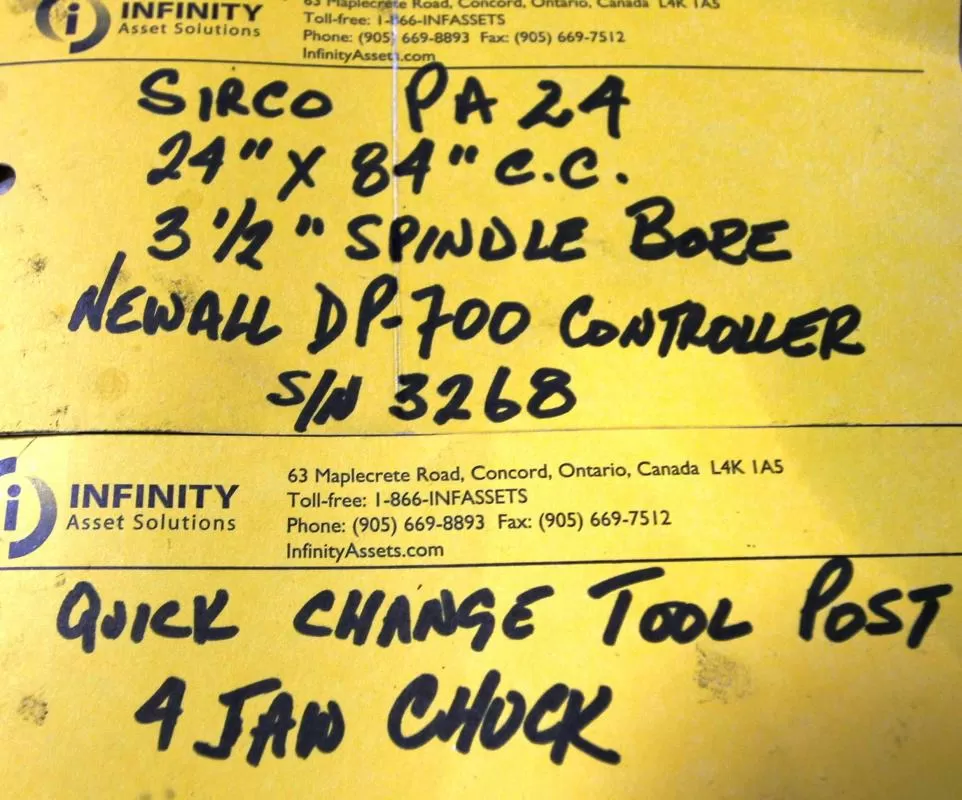 INFINITY
Asset Solutions
63 Maplecrete Road, Concord, Ontario, Canada L4K 1A5
Toll-free: 1-866-INFASSETS
Phone: (905) 669-8893 Fax: (905) 669-7512
InfinityAssets.com
SIRCO PA 24
24" X 84" C.C.
3 1/2" SPINDLE BORE
NEWALL DP-700 CONTROLLER
S/N 3268
INFINITY
Asset Solutions
63 Maplecrete Road, Concord, Ontario, Canada L4K 1A5
Toll-free: 1-866-INFASSETS
Phone: (905) 669-8893 Fax: (905) 669-7512
InfinityAssets.com
QUICK CHANGE TOOL POST
4 JAW CHUCK